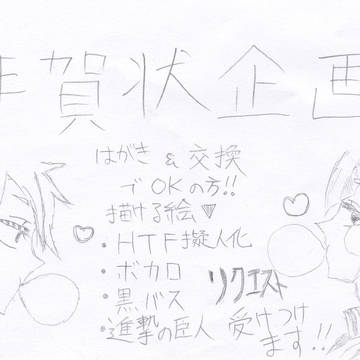 年賀状企画
はがき & 交換
でOKの方!!
描ける絵♥
・HTF擬人化
・ボカロ
・黒バス
・進撃の巨人
リクエスト
受けつけ
ます!!